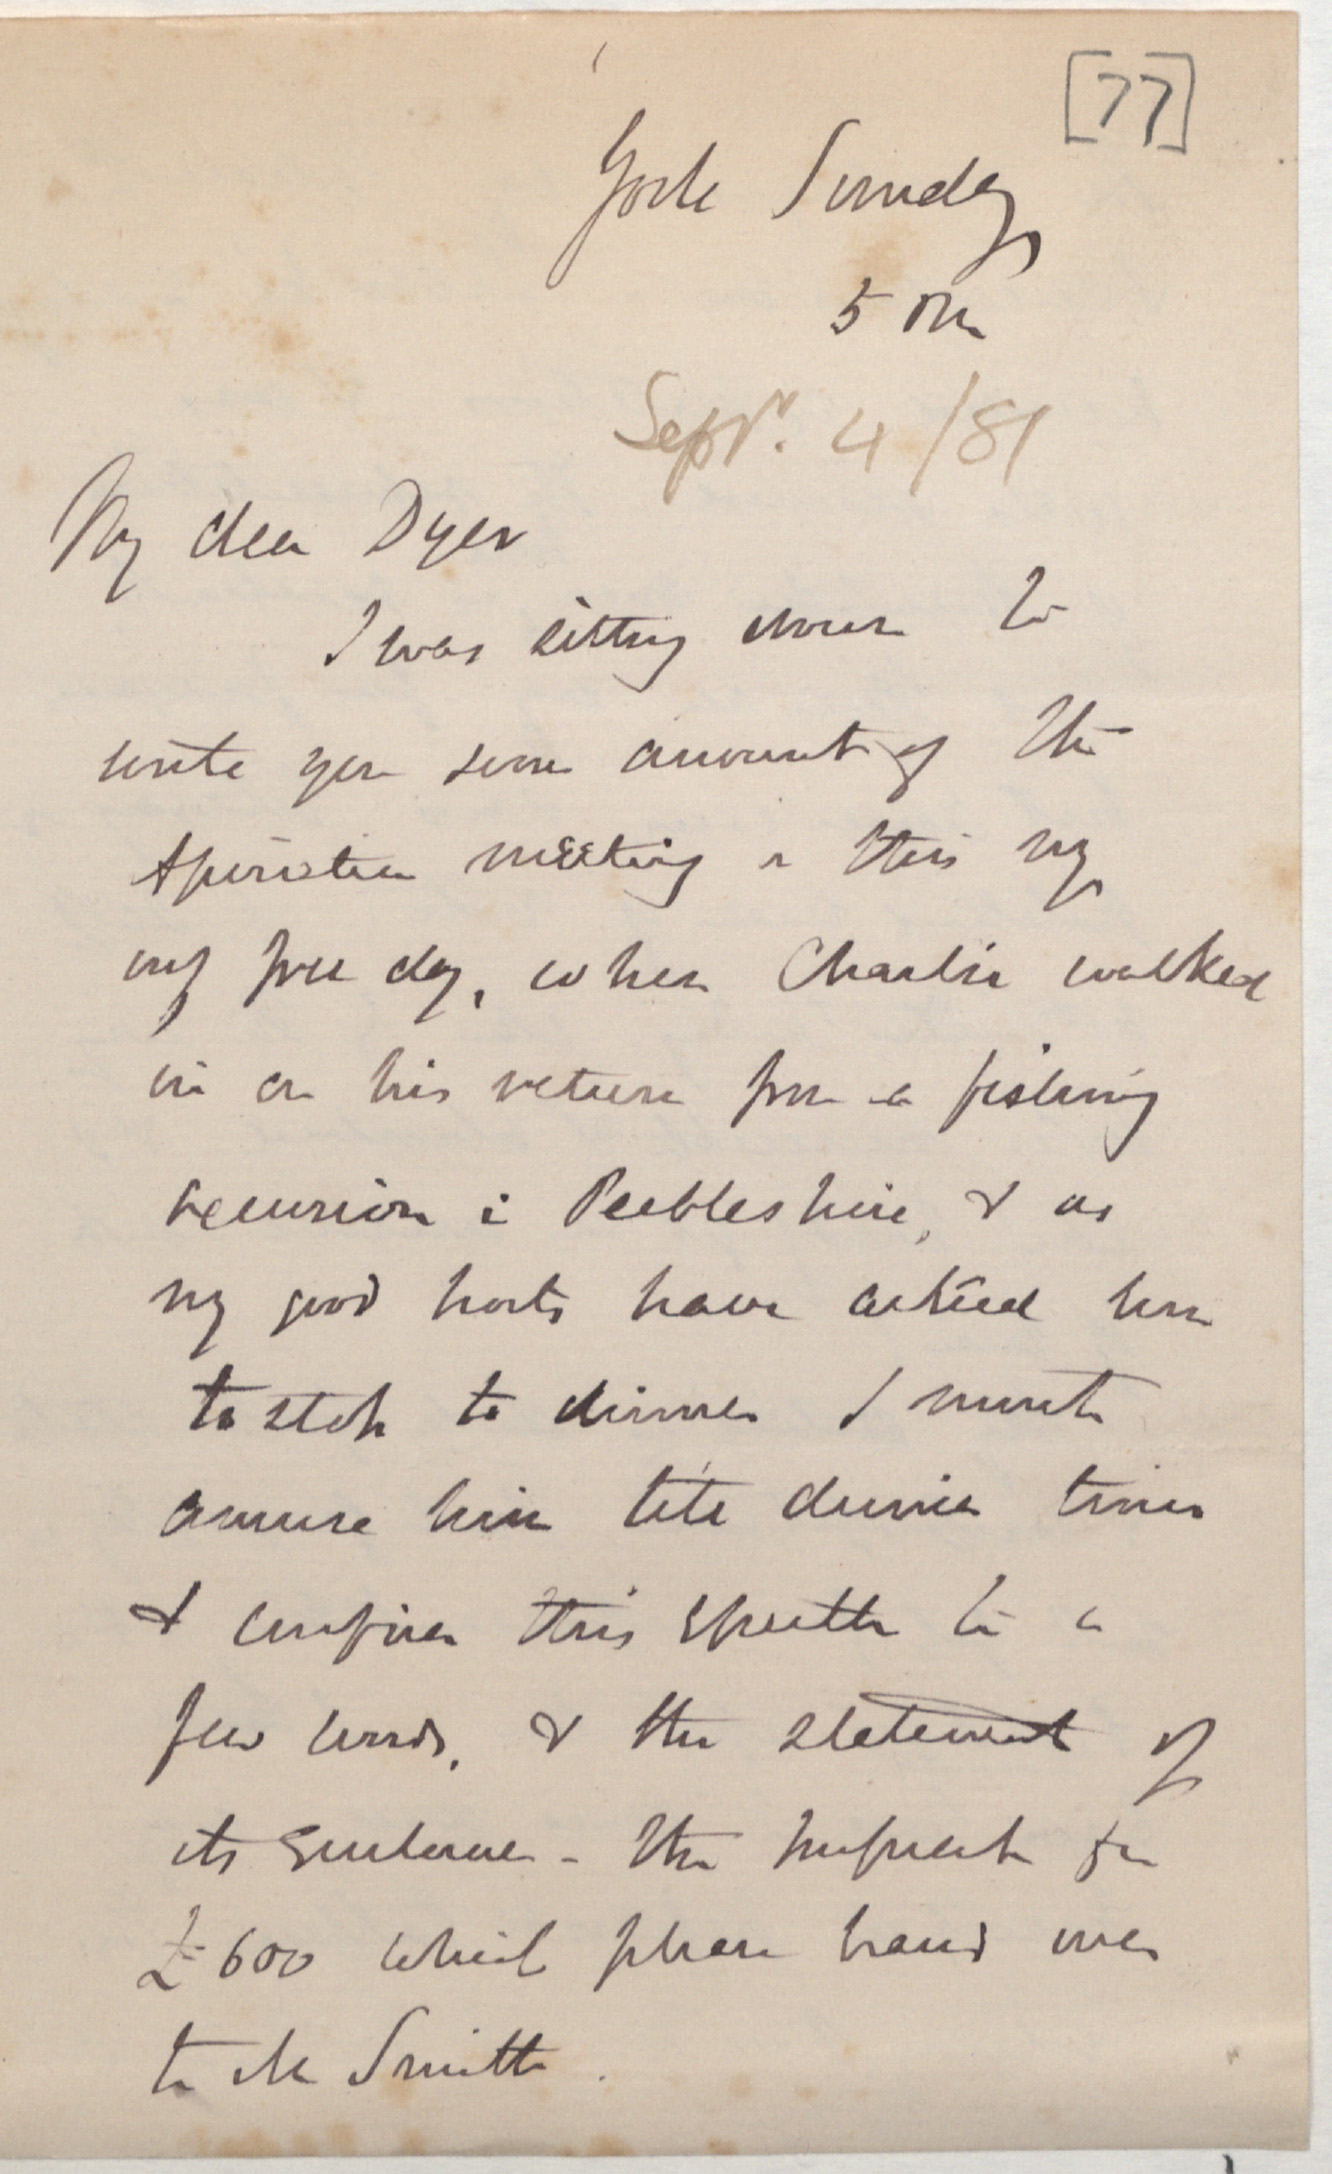 [77]
York Sunday
5 PM
Septr. 4/81
My dear Dyer
I was sitting down to
write you some account of the
Association meeting in this my
only free day, when Charlie walked
in on his return from a fishing
excursion in Peebleshire, & as
my good hosts have asked him
to stop to dinner I must
amuse him till dinner time
& confine this epistle to a
few words, & the statement of
its enclosure - the Imprest for
£600 which please hand over
to Mr Smith.